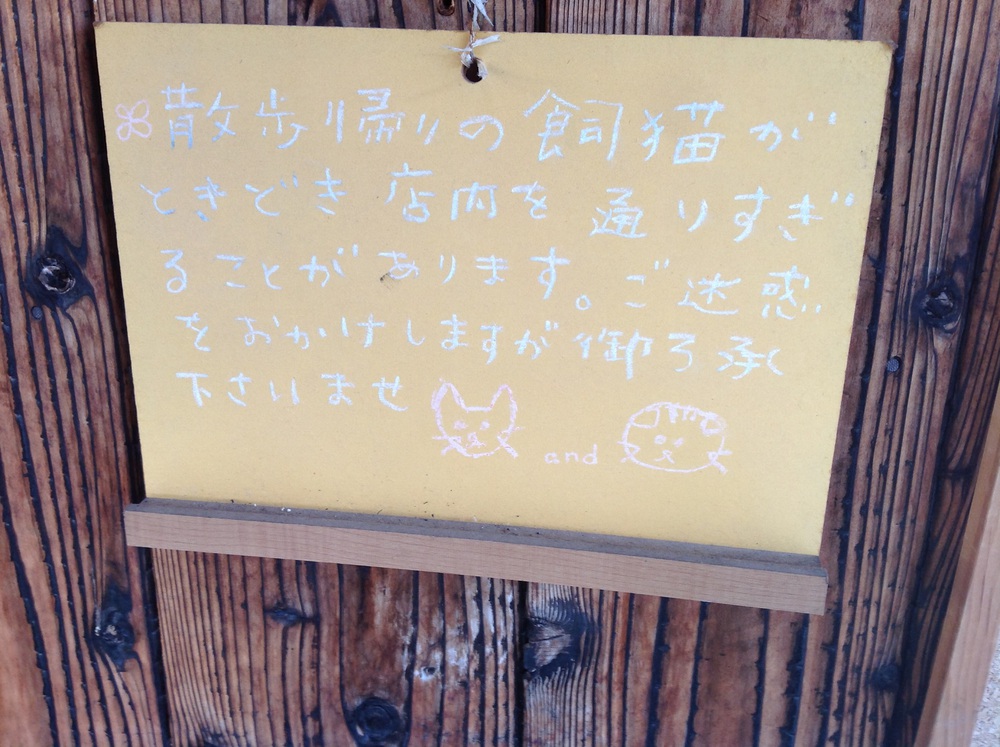 散歩帰りの飼猫が
ときどき店内を通りすぎ
ることがあります。ご迷惑
をおかけしますが御了承
下さいませ
and